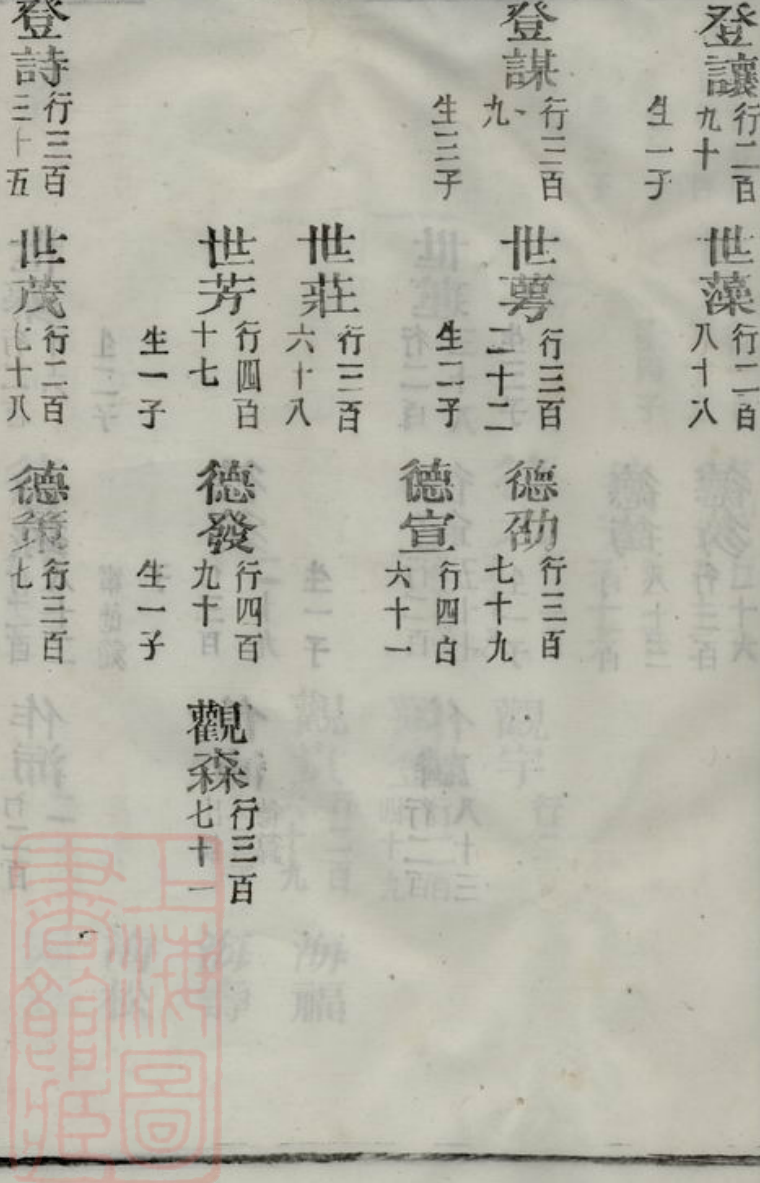 登讓 行二百九十 生一子
世藻 行二百八十八
登謀 行三百九 生三子
世蕚 行三百二十二 生二子
德劭 行三百七十九
德宣 行四百六十一
世莊 行三百六十八
世芳 行四百十七 生一子
德發 行四百九十 生一子
觀森 行三百七十一
登詩 行三百三十五
世茂 行二百七十八
德策 行三百七
上海圖書館藏